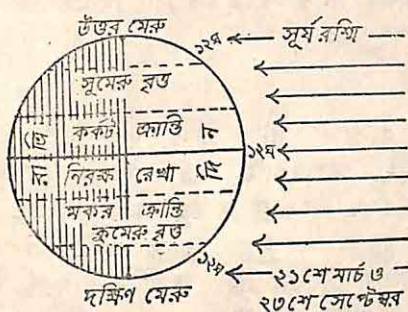 উত্তর মেরু
১২ঘ সূর্য রশ্মি
সুমেরু বৃত্ত
কর্কট ক্রান্তি
রাত্রি দিন
১২ঘ
নিরক্ষ রেখা
মকর ক্রান্তি
কুমেরু বৃত্ত
১২ঘ
দক্ষিণ মেরু
২১শে মার্চ ও
২৩শে সেপ্টেম্বর